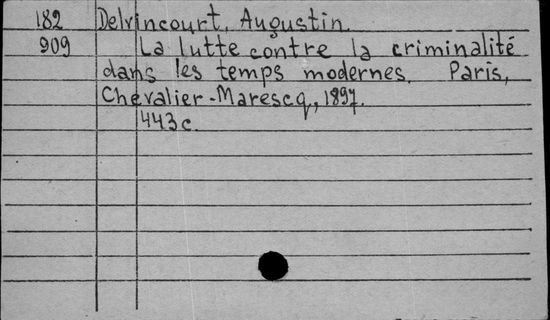 182 Delvincourt, Augustin.
909 La lutte contre la criminalité
dans les temps modernes. Paris,
Chevalier-Marescq, 1897.
443 c.